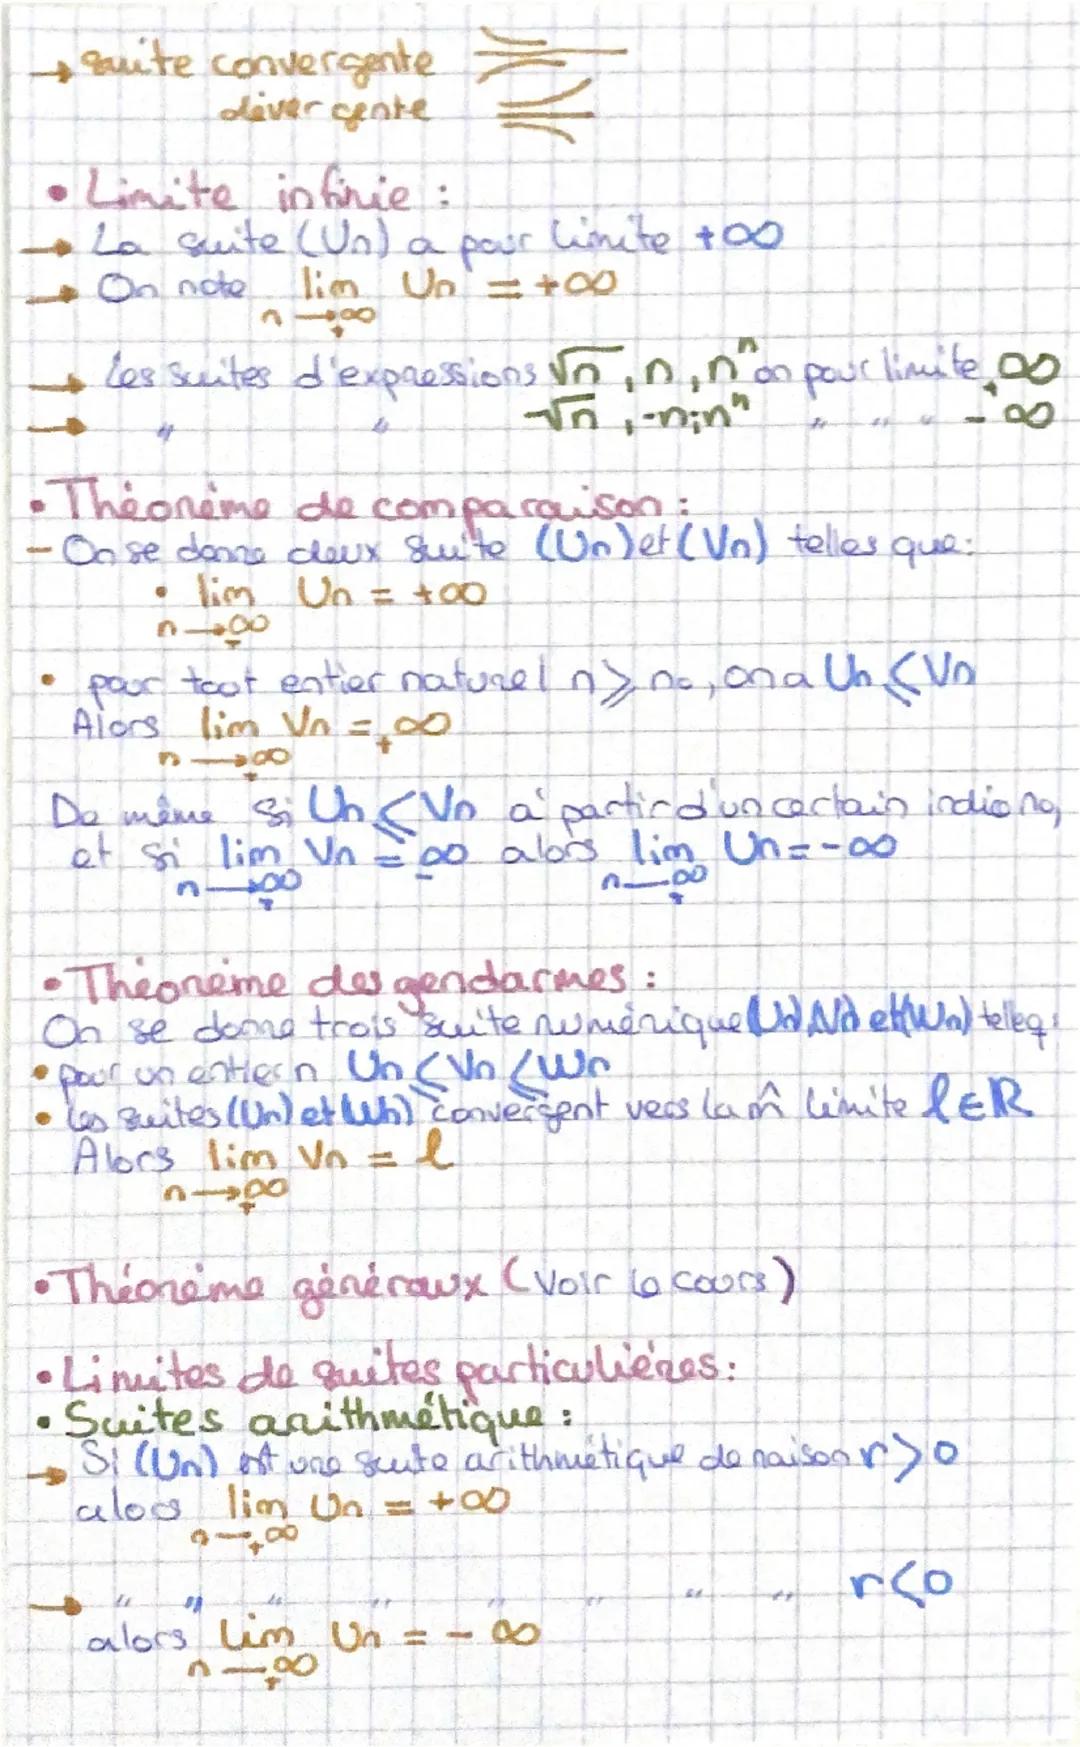 → suite convergente
divergente
• Limite infinie :
→ La suite (Un) a pour limite +∞
→ On note lim Un = +∞
n → +∞
→ les suites d'expressions √n , n , nⁿ on pour limite +∞
→ " " -√n , -n ; nⁿ " " " -∞
• Théorème de comparaison :
- On se donne deux suite (Un) et (Vn) telles que :
• lim Un = +∞
n → +∞
• pour tout entier naturel n ⩾ n₀, on a Un ⩽ Vn
Alors lim Vn = +∞
n → +∞
De même si Un ⩽ Vn à partir d'un certain indice n₀,
et si lim Vn = -∞ alors lim Un = -∞
n → +∞ n → +∞
• Théorème des gendarmes :
On se donne trois suite numérique (Un) (Vn) et (Wn) telle q:
• pour un entier n Un ⩽ Vn ⩽ Wn
• les suites (Un) et (Wn) convergent vers la m̂ limite ℓ ∈ ℝ
Alors lim Vn = ℓ
n → +∞
• Théorème généraux (Voir le cours)
• Limites de suites particulières :
• Suites arithmétique :
→ Si (Un) est une suite arithmétique de raison r > 0
alors lim Un = +∞
n → +∞
→ " " " " " " " " r < 0
alors lim Un = - ∞
n → +∞